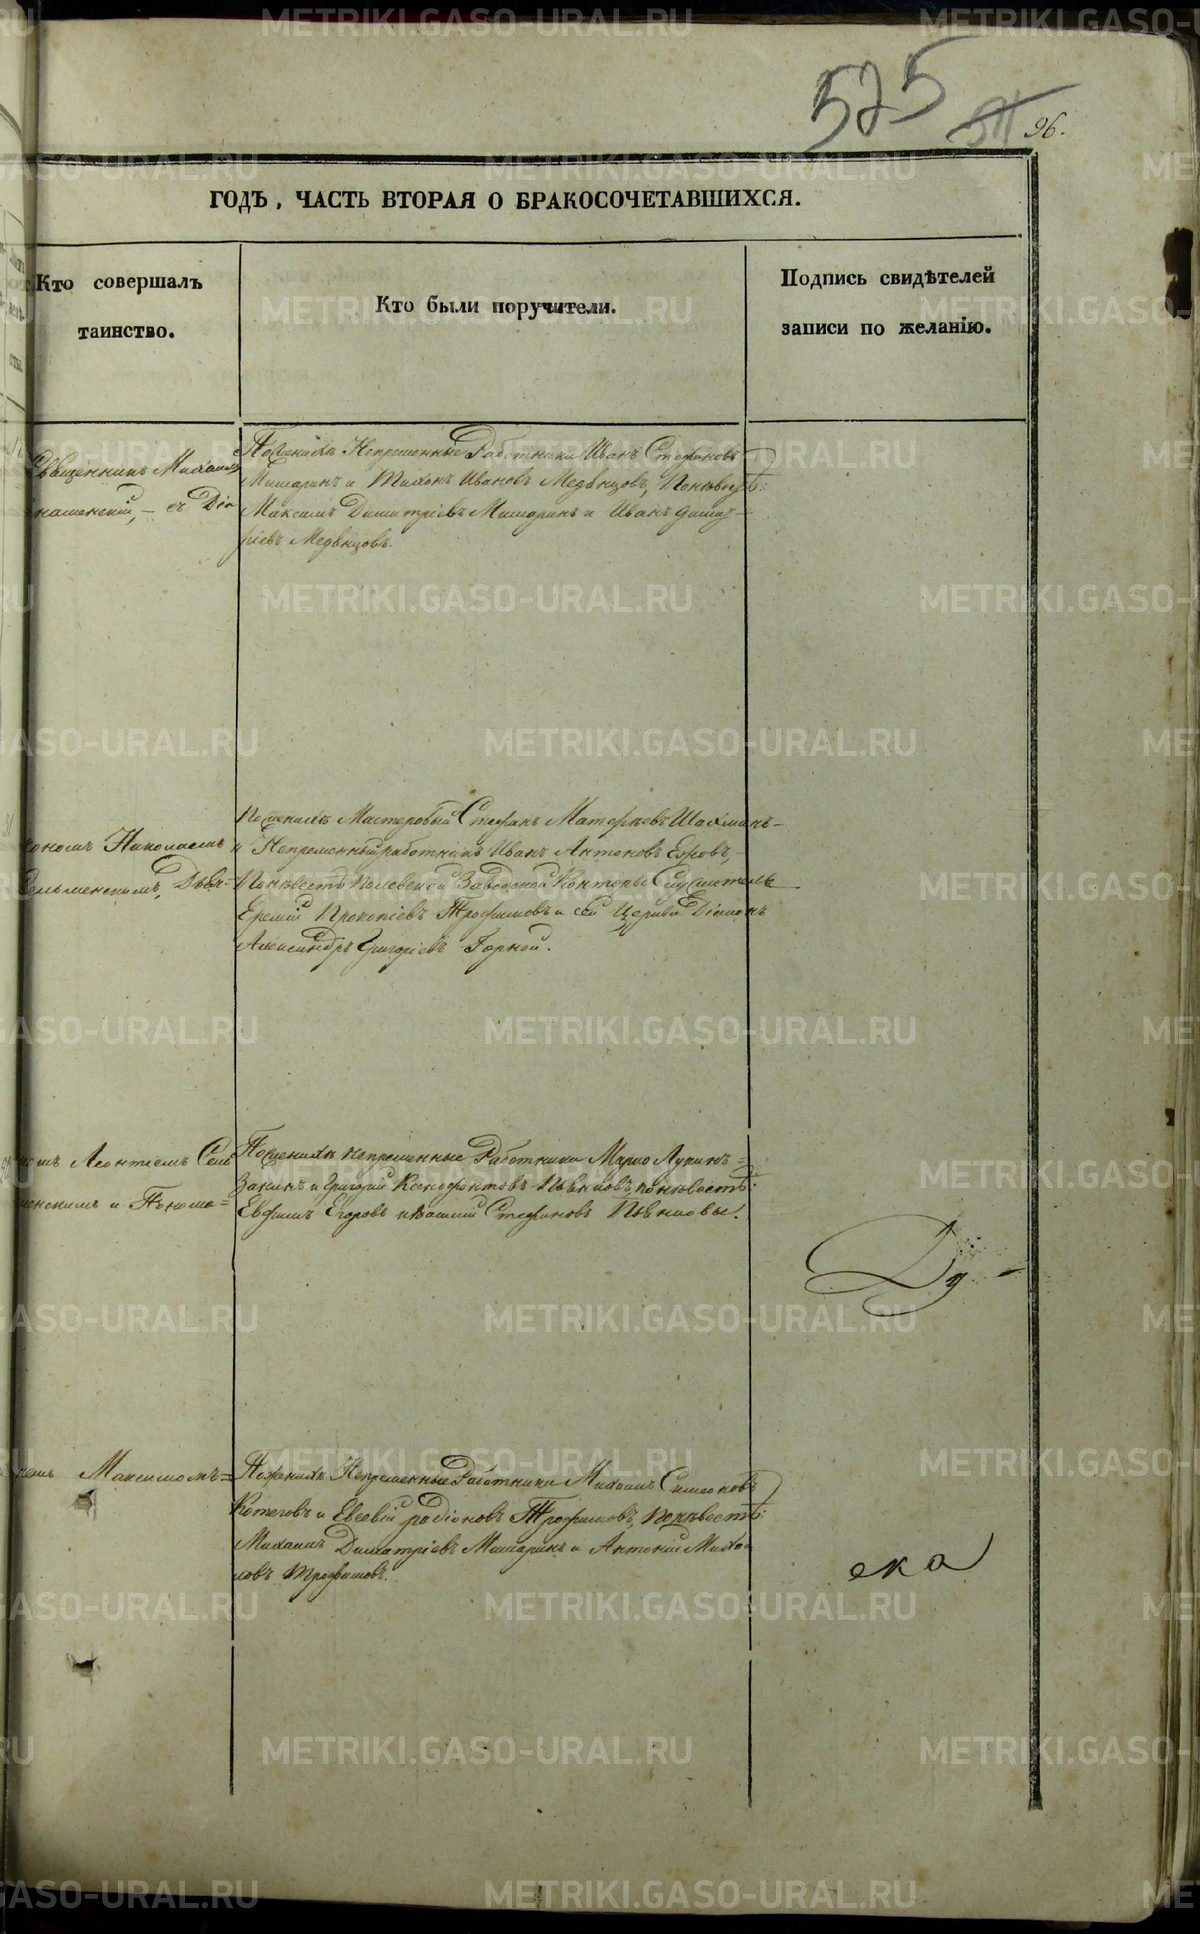 525
96.
ГОДЪ, ЧАСТЬ ВТОРАЯ О БРАКОСОЧЕТАВШИХСЯ.
Кто совершалъ
таинство.
Кто были поручители.
Подпись свидѣтелей
записи по желанію.
Священникъ Михаилъ
съ Діа
По женихѣ Непременные Работники Иванъ Стефановъ
Мишаринъ и Тихонъ Ивановъ Медвѣцовъ, По невѣстѣ:
Максимъ Димитріевъ Мишаринъ и Иванъ Димит-
ріевъ Медвѣцовъ.
кономъ Николаемъ
Дьяч-
По женихѣ Мастеровый Стефанъ Матфѣевъ
и Непременный работникъ Иванъ Антоновъ
По невѣстѣ Полевской Заводской Конторы Служитель
Еремій Прокопіевъ Трофимовъ и сей Церкви Діаконъ
Александръ Григорьевъ Горной.
комъ Леонтіемъ Сель
менскимъ и Понома=
По женихѣ непременные Работники Марко Лукинъ
и Григорій Ксенофонтовъ Пьянковъ, по невѣстѣ:
Евфимъ Егоровъ и Стефановъ Пьянковы.
Ду-
ремъ Максимомъ=
По женихѣ Непременные Работники Михаилъ Симеоновъ
Котеговъ и Евсевій Родіоновъ Трофимовъ, По невѣстѣ:
Михаилъ Димитріевъ Мишаринъ и Антоній Михаи
ловъ Трофимовъ.
ека
METRIKI.GASO-URAL.RU